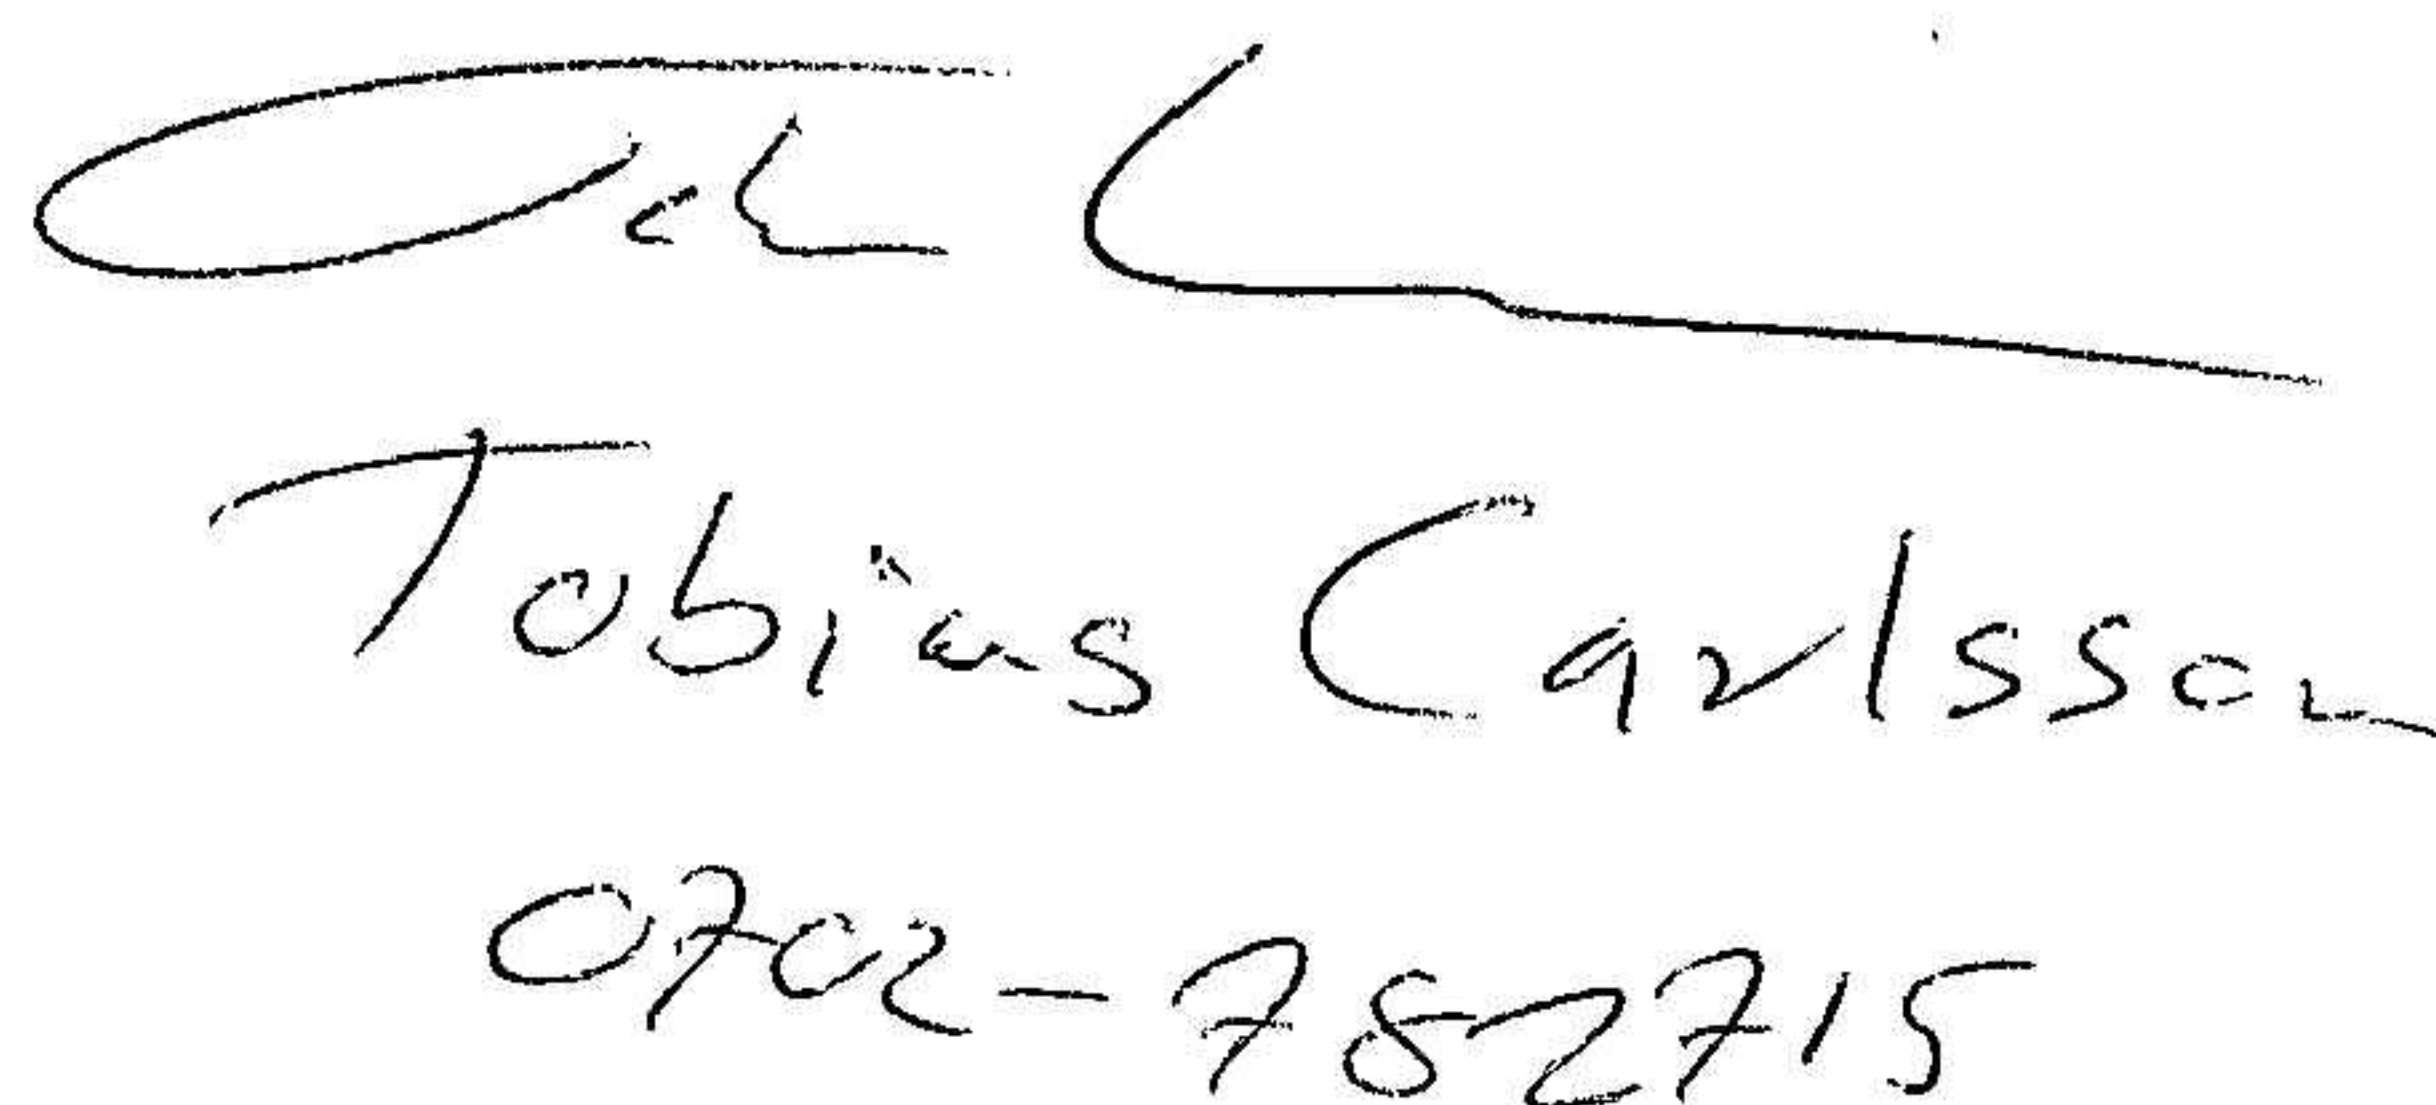 Tobias Carlsson
0702-782715